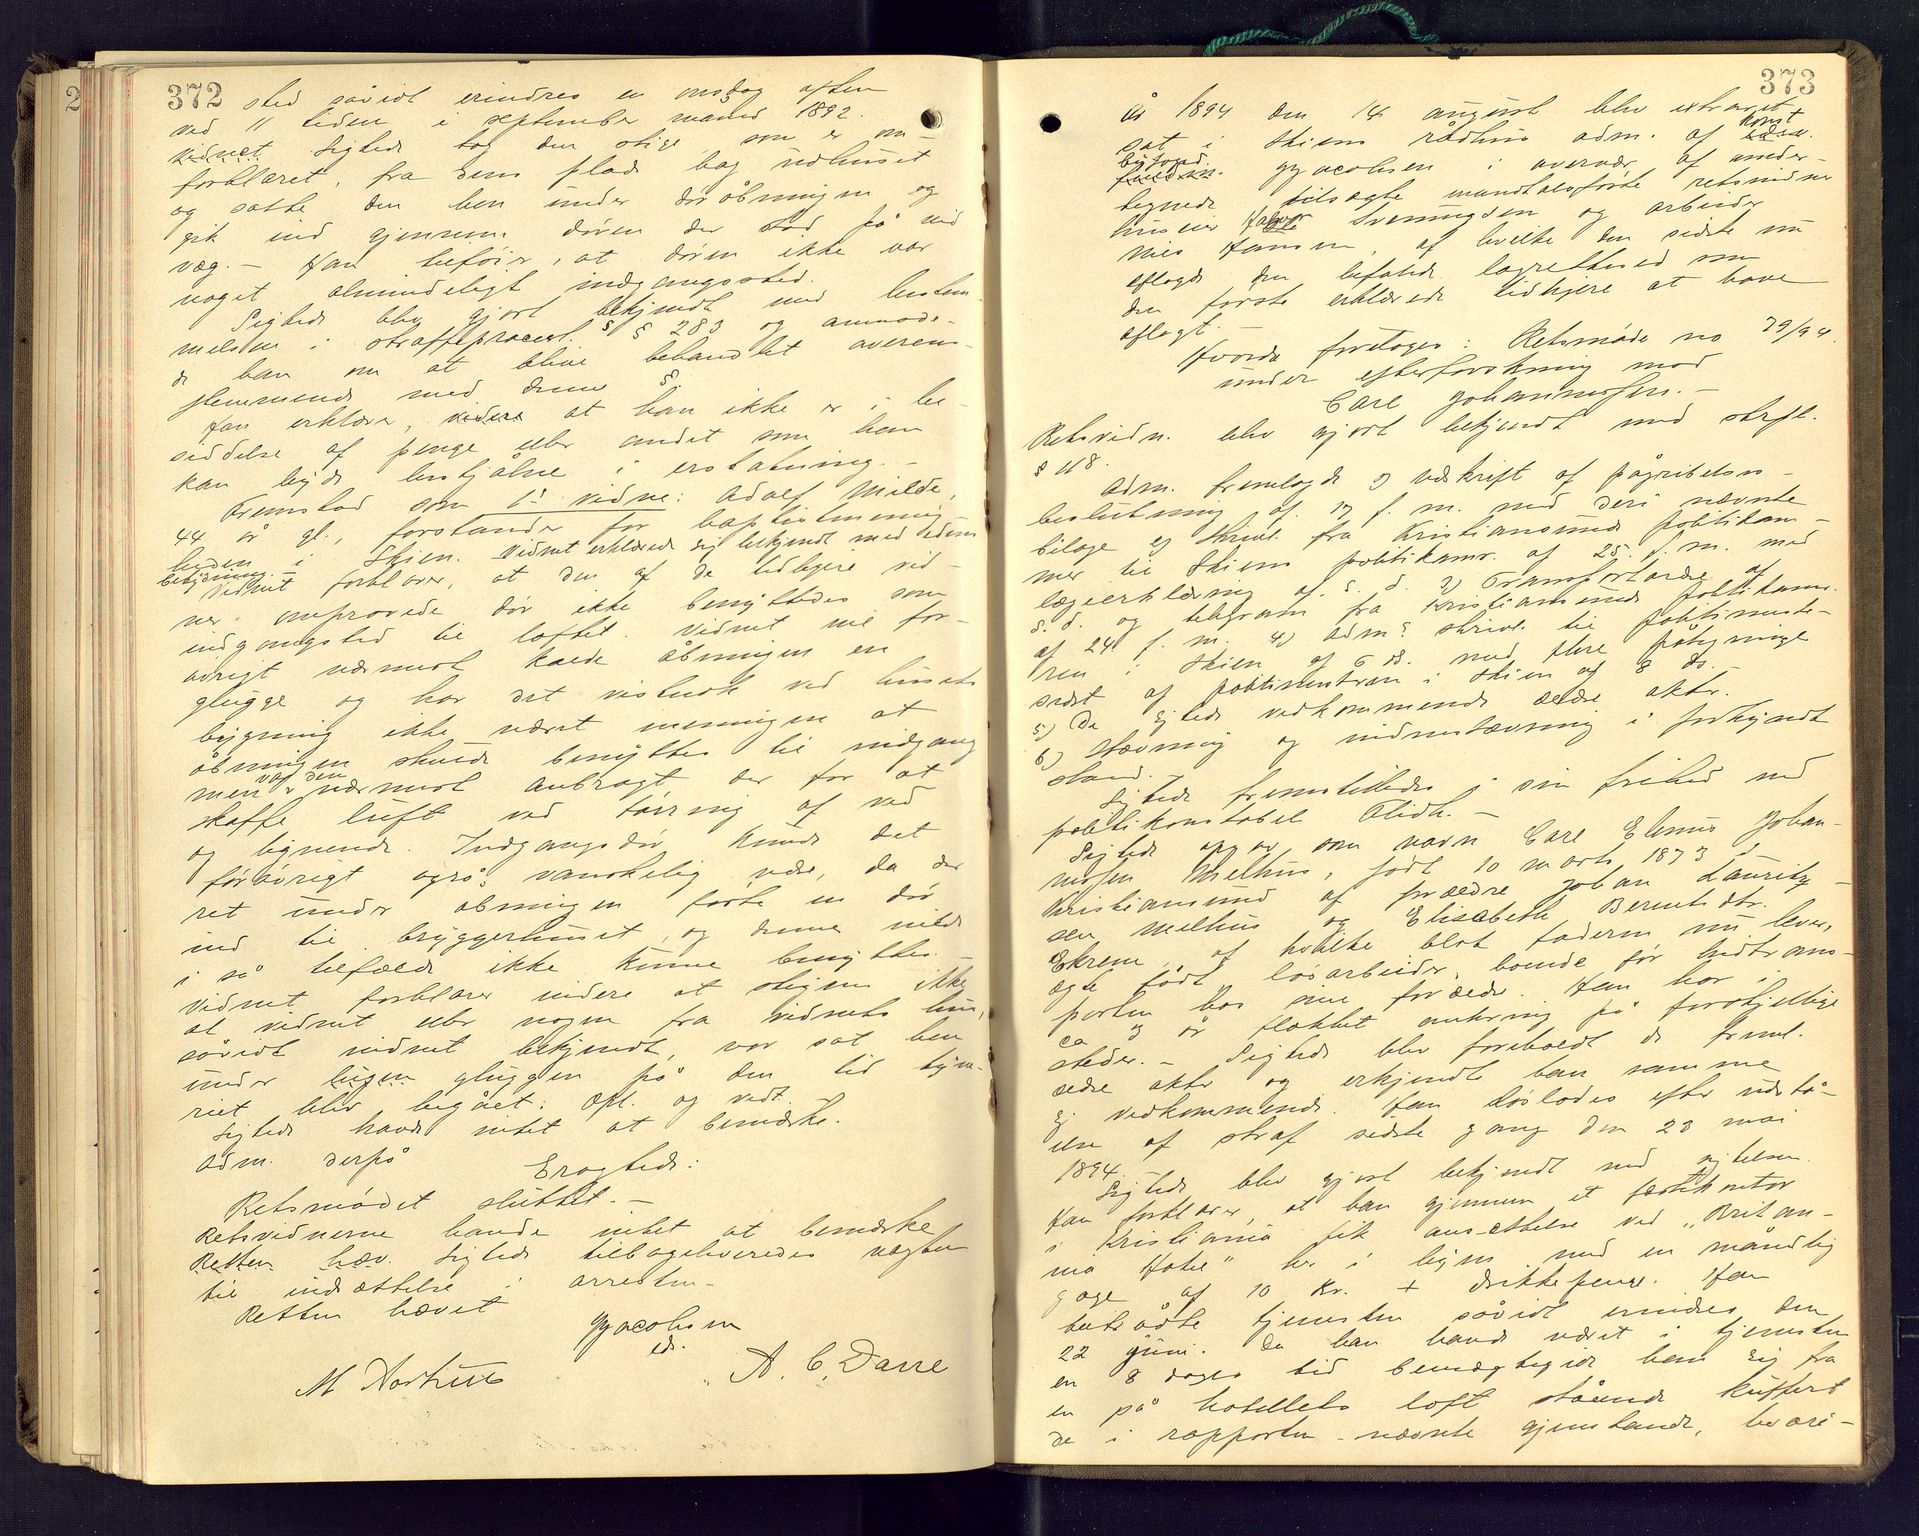 372
sted såvidt erindres en onsdag aften
ved 11 tiden i september måned 1892.
vidnet Sigtede tog den stige, som er om-
forklaret, fra dens plads bag udhuset
og satte den hen under døråbningen og
gik ind gjennem døren der stod på vid
væg. – Han tilføier, at døren ikke var
noget almindeligt indgangssted.
Sigtede blev gjort bekjendt med bestem-
melsen i straffeprocesl. § 283 og anmode-
de han om at blive behandlet overens-
stemmende med denne §.
Han erklærer, videre at han ikke er i be-
siddelse af penge eller andet som han
kan byde bestjålne i erstatning. –
Fremstod som 1ste vidne: Adolf Milde,
44 år gl., forstander for baptistmenig-
heden i Skien. Vidnet erklærede sig bekjendt med edens
betydning. –
Vidnet forklarer, at den af de tidligere vid-
ner omprovede dør ikke benyttedes som
indgangsted til loftet. Vidnet vil for-
øvrigt nærmest kalde åbningen en
glugge og har det vistnok ved husets
bygning ikke været meningen at
åbningen skulde benyttes til indgang
men var den nærmest anbragt der for at
skaffe luft ved tørring af ved
og lignende. Indgangsdør kunde det
forøvrigt også vanskelig være, da der
ret under åbningen førte en dør
ind til bryggerhuset, og denne vilde
i så tilfælde ikke kunne benyttes. –
Vidnet forklarer videre at stigen ikke
at vidnet eller nogen fra vidnets hus,
såvidt vidnet bekjendt, var sat hen
under lugen gluggen på den tid tyve-
riet blev begået. Opl. og vedt.
Sigtede havde intet at bemærke.
Adm. derpå
Eragtede:
Retsmødet sluttet. –
Retsvidnerne havde intet at bemærke
Retten hæv. Sigtede tilbageleveredes vagten
til indsættelse i arresten –
Retten hævet
GJacobsen
cst.
M Aarhuus A. C. Darre
373
År 1894 den 14 august blev extraret
sat i Skiens rådhus adm. af konst.
byfogd. GJacobsen i overvær af under-
tegnede tilsagte mandtalsførte retsvidner
huseier Halvor Sveningsen og arbeider
Nils Hansen, af hvilke den sidste nu
aflagde den befalede lagrettesed som
den første erklærede tidligere at have
aflagt.
Hvorda foretoges: Retsmøde no 79/94
under efterforskning mod
Carl Johannessen. –
Retsvidn. blev gjort bekjendt med strfl.
§ 118.
Adm. fremlagde 1) udskrift af pågribelses-
beslutning af 19 f. m. med deri nævnte
bilage 2) Skriv. fra Kristiansunds politikam-
mer til Skiens politikamr. af 25. f. m. med
lægeerklæring af s. d. 3) Transportordre af
s. d. og telegram fra Kristiansunds politikamr.
af 24. f. m. 4) Adm.s skriv. til politimeste-
ren i Skien af 6 ds. med flere påtegninge
sidst af politimesteren i Skien af 8 ds. –
5) De Sigtede vedkommende ældre akter.
6) Stævning og vidnestævning i forkyndt
stand.
Sigtede fremstilledes i sin frihed ved
politikonstabel Olidh. –
Sigtede opgav som navn Carl Elenus Johan-
nessen Melhus, født 10 marts 1873 i
Kristiansund af forældre Johan Lauritz-
sen Melhus og Elisabeth Berntsdtr.
Ekrem, af hvilke blot faderen nu lever,
ægte født løsarbeider, boende før hidtrans-
porten hos sine forældre. Han har i
ca 9 år flakket omkring på forskjellige
steder. – Sigtede blev foreholdt de freml.
ældre akter og erkjendte han samme
sig vedkommende. Han løslodes efter udstå-
else af straf sidste gang den 23 mai
1894.
Sigtede blev gjort bekjendt med sigtelsen.
Han forklarer, at han gjennem et fæstekontor
i Kristiania fik ansættelse ved „Britan-
nia Hotel" her i byen med en månedlig
gage af 10 kr. + drikkepenge. Han
tiltrådte tjenesten såvidt erindres den
22 juni. Da han havde været i tjenesten
en 8 dages tid bemægtigede han sig fra
en på hotellets loft stående kuffert
de i rapporten nævnte gjenstande, hvori-